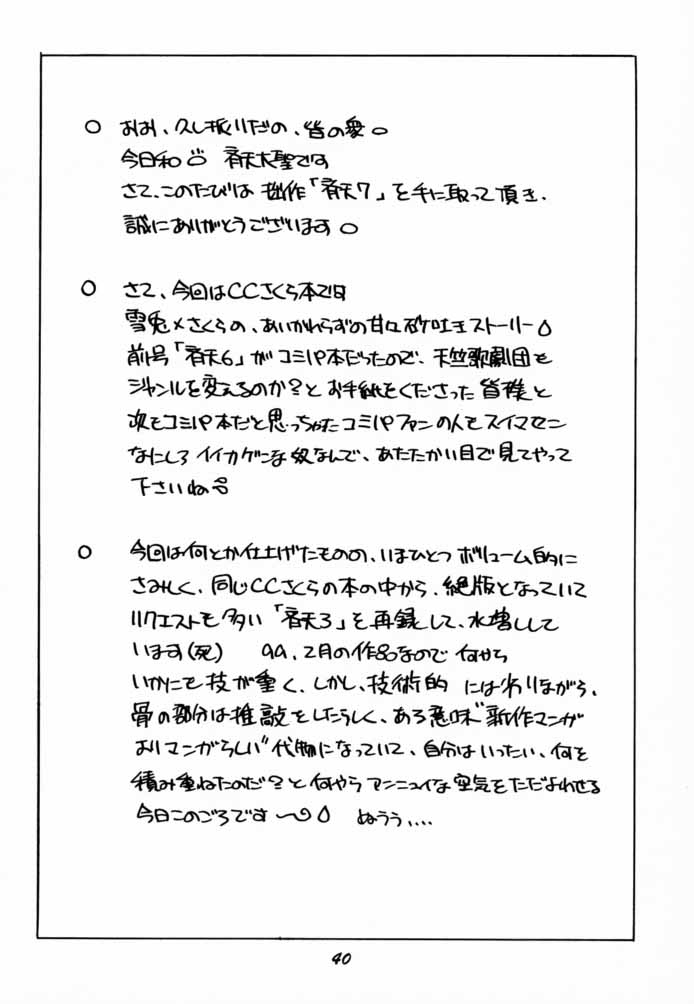 ○ おお、久し振りだの、皆の衆。
今日和 斉天大聖です
さて、このたびは 拙作「斉天7」を手に取って頂き、
誠にありがとうございます。
○ さて、今回はCCさくら本です
雪兎×さくらの、あいかわらずの甘々砂吐きストーリー
前号「斉天6」がコミパ本だったので、天竺歌劇団も
ジャンルを変えるのか?と お手紙をくださった皆様と
次もコミパ本だと思っちゃったコミパファンの人もスイマセン
なにしろ イイカゲンな奴なんで、あたたかい目で見てやって
下さいね
○ 今回は何とか仕上げたものの、いまひとつ ボリューム的に
さみしく、同じCCさくらの本の中から、絶版となっていて
リクエストも多い「斉天3」を再録して、水増しして
います(死) 99.2月の作品なので 何やら
いかにも技が重く、しかし、技術的 には劣りながら、
骨の部分は推敲をしたらしく、ある意味"新作マンガ
よりマンガらしい"代物になっていて、自分はいったい、何を
積み重ねたのだ?と何やら アンニュイな空気をただよわせる
今日このごろです〜 ぬうう....
40